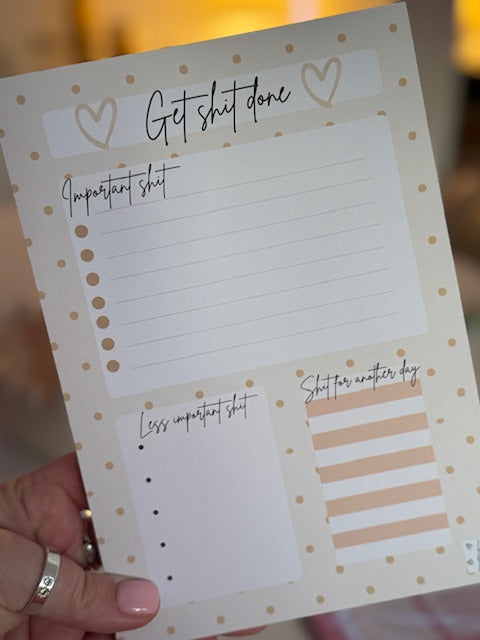 Get shit done
Important shit
Less important shit
Shit for another day